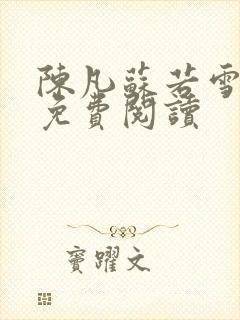 陳凡蘇若雪
免費閱讀
竇躍文